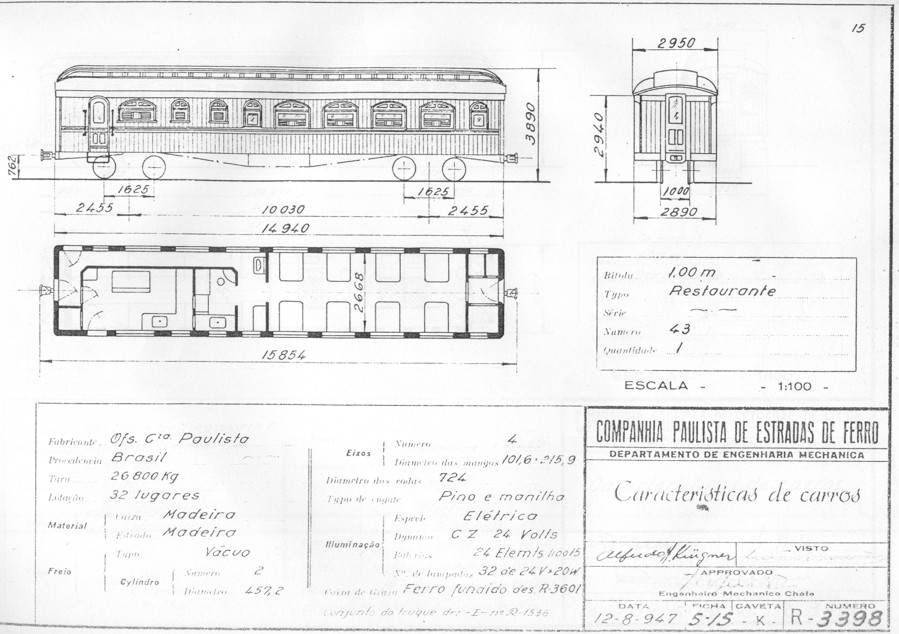 15
2950
3890
2940
762
1625
1625
1000
2455
10030
2455
2890
14940
2668
15854
Bitola 1,00 m
Typo Restaurante
Série
Numero 43
Quantidade 1
ESCALA - - 1:100 -
Fabricante Ofs. Cia. Paulista
Procedencia Brasil
Tara 26 800 Kg
Lotação 32 lugares
Material
Caixa Madeira
Estrado Madeira
Freio
Typo Vácuo
Cylindro
Numero 2
Diametro 457,2
Eixos
Numero 4
Diametro das mangas 101,6 · 215,9
Diametro das rodas 724
Typo de engate Pino e manilha
Illuminação
Especie Elétrica
Dynamo C Z 24 Volts
Baterias 24 Elemts
Nº. de lampadas 32 de 24V x 20W
Caixa de Graxa Ferro fundido des. R-3601
Conjunto do truque des. -E- ns R-1536
COMPANHIA PAULISTA DE ESTRADAS DE FERRO
DEPARTAMENTO DE ENGENHARIA MECHANICA
Caracteristicas de carros
VISTO
APPROVADO
Engenheiro Mechanico Chefe
DATA FICHA GAVETA NUMERO
12-8-947 5-15 - K - R-3398